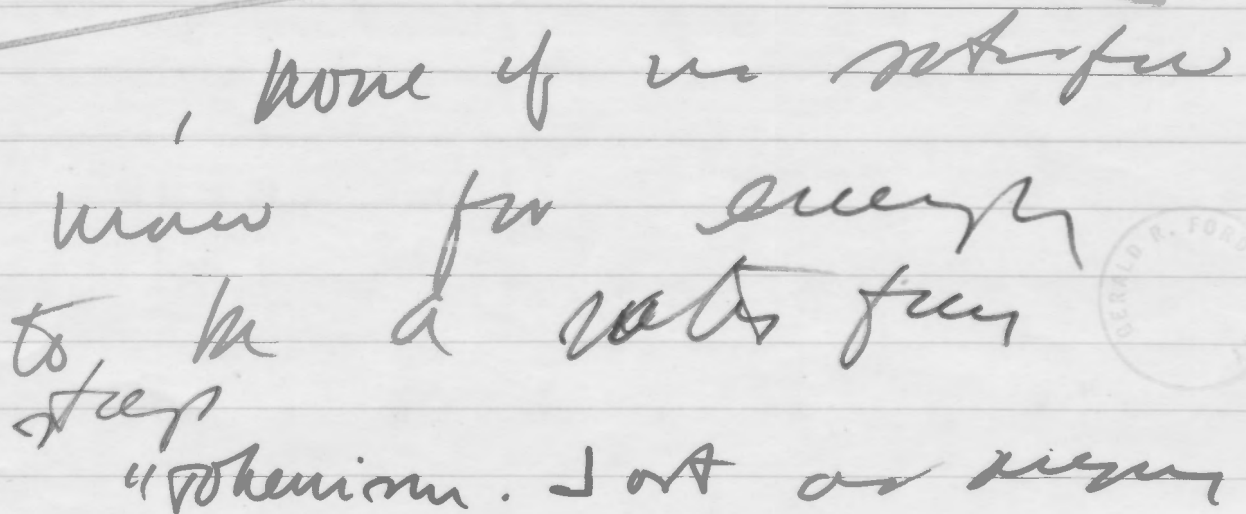 , none of us satisfied
far enough
to be a satisfying
step
"Tokenism. Sort as
GERALD R. FORD